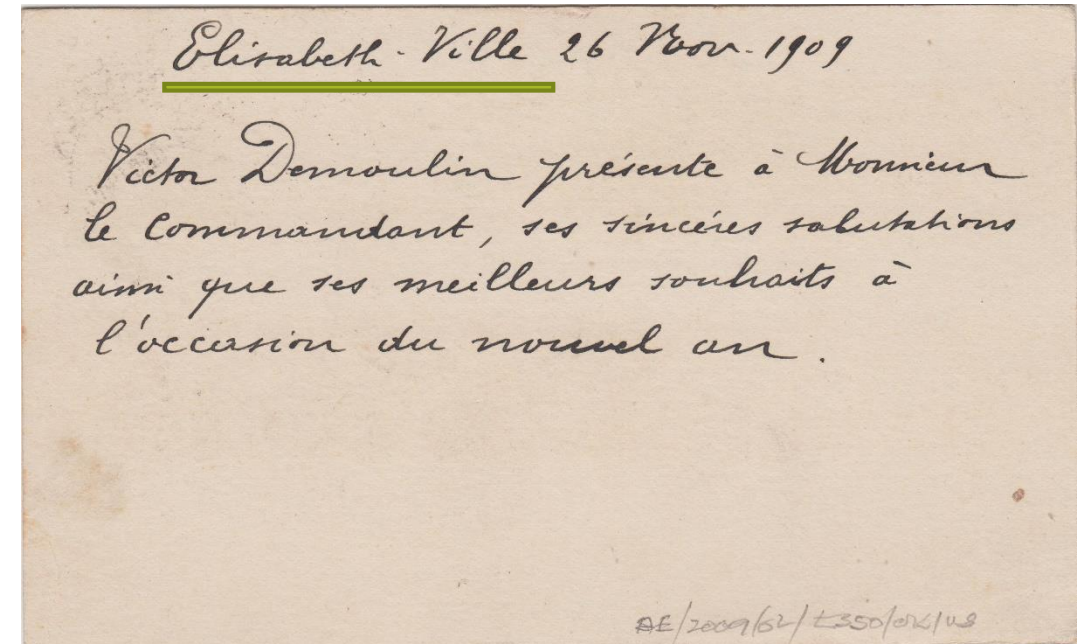 Elisabeth-Ville 26 Nov. 1909
Victor Demoulin présente à Monsieur
le Commandant, ses sincères salutations
ainsi que ses meilleurs souhaits à
l'occasion du nouvel an.
AE/2009/62/